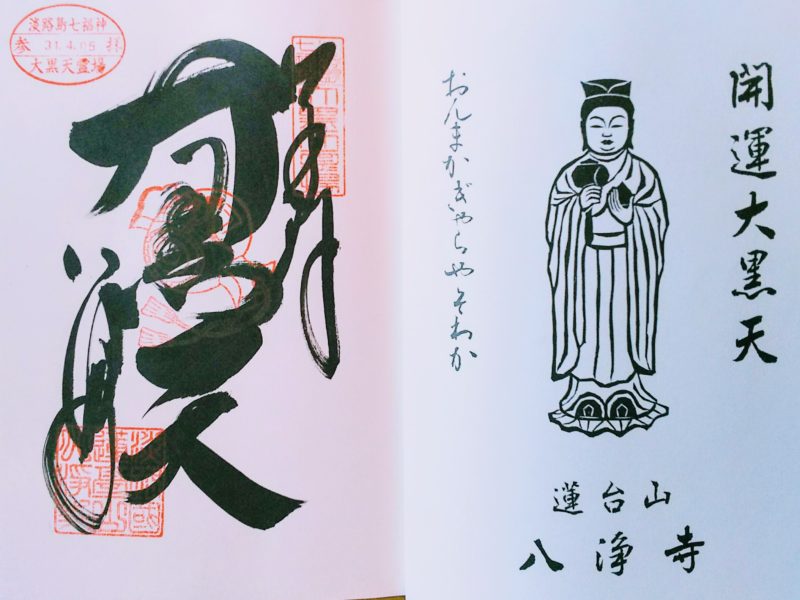 開運大黒天
おんまかぎゃらやそわか
蓮台山
八浄寺
淡路島七福神
参 31.4.05 拝
大黒天霊場
大黒天
八浄寺